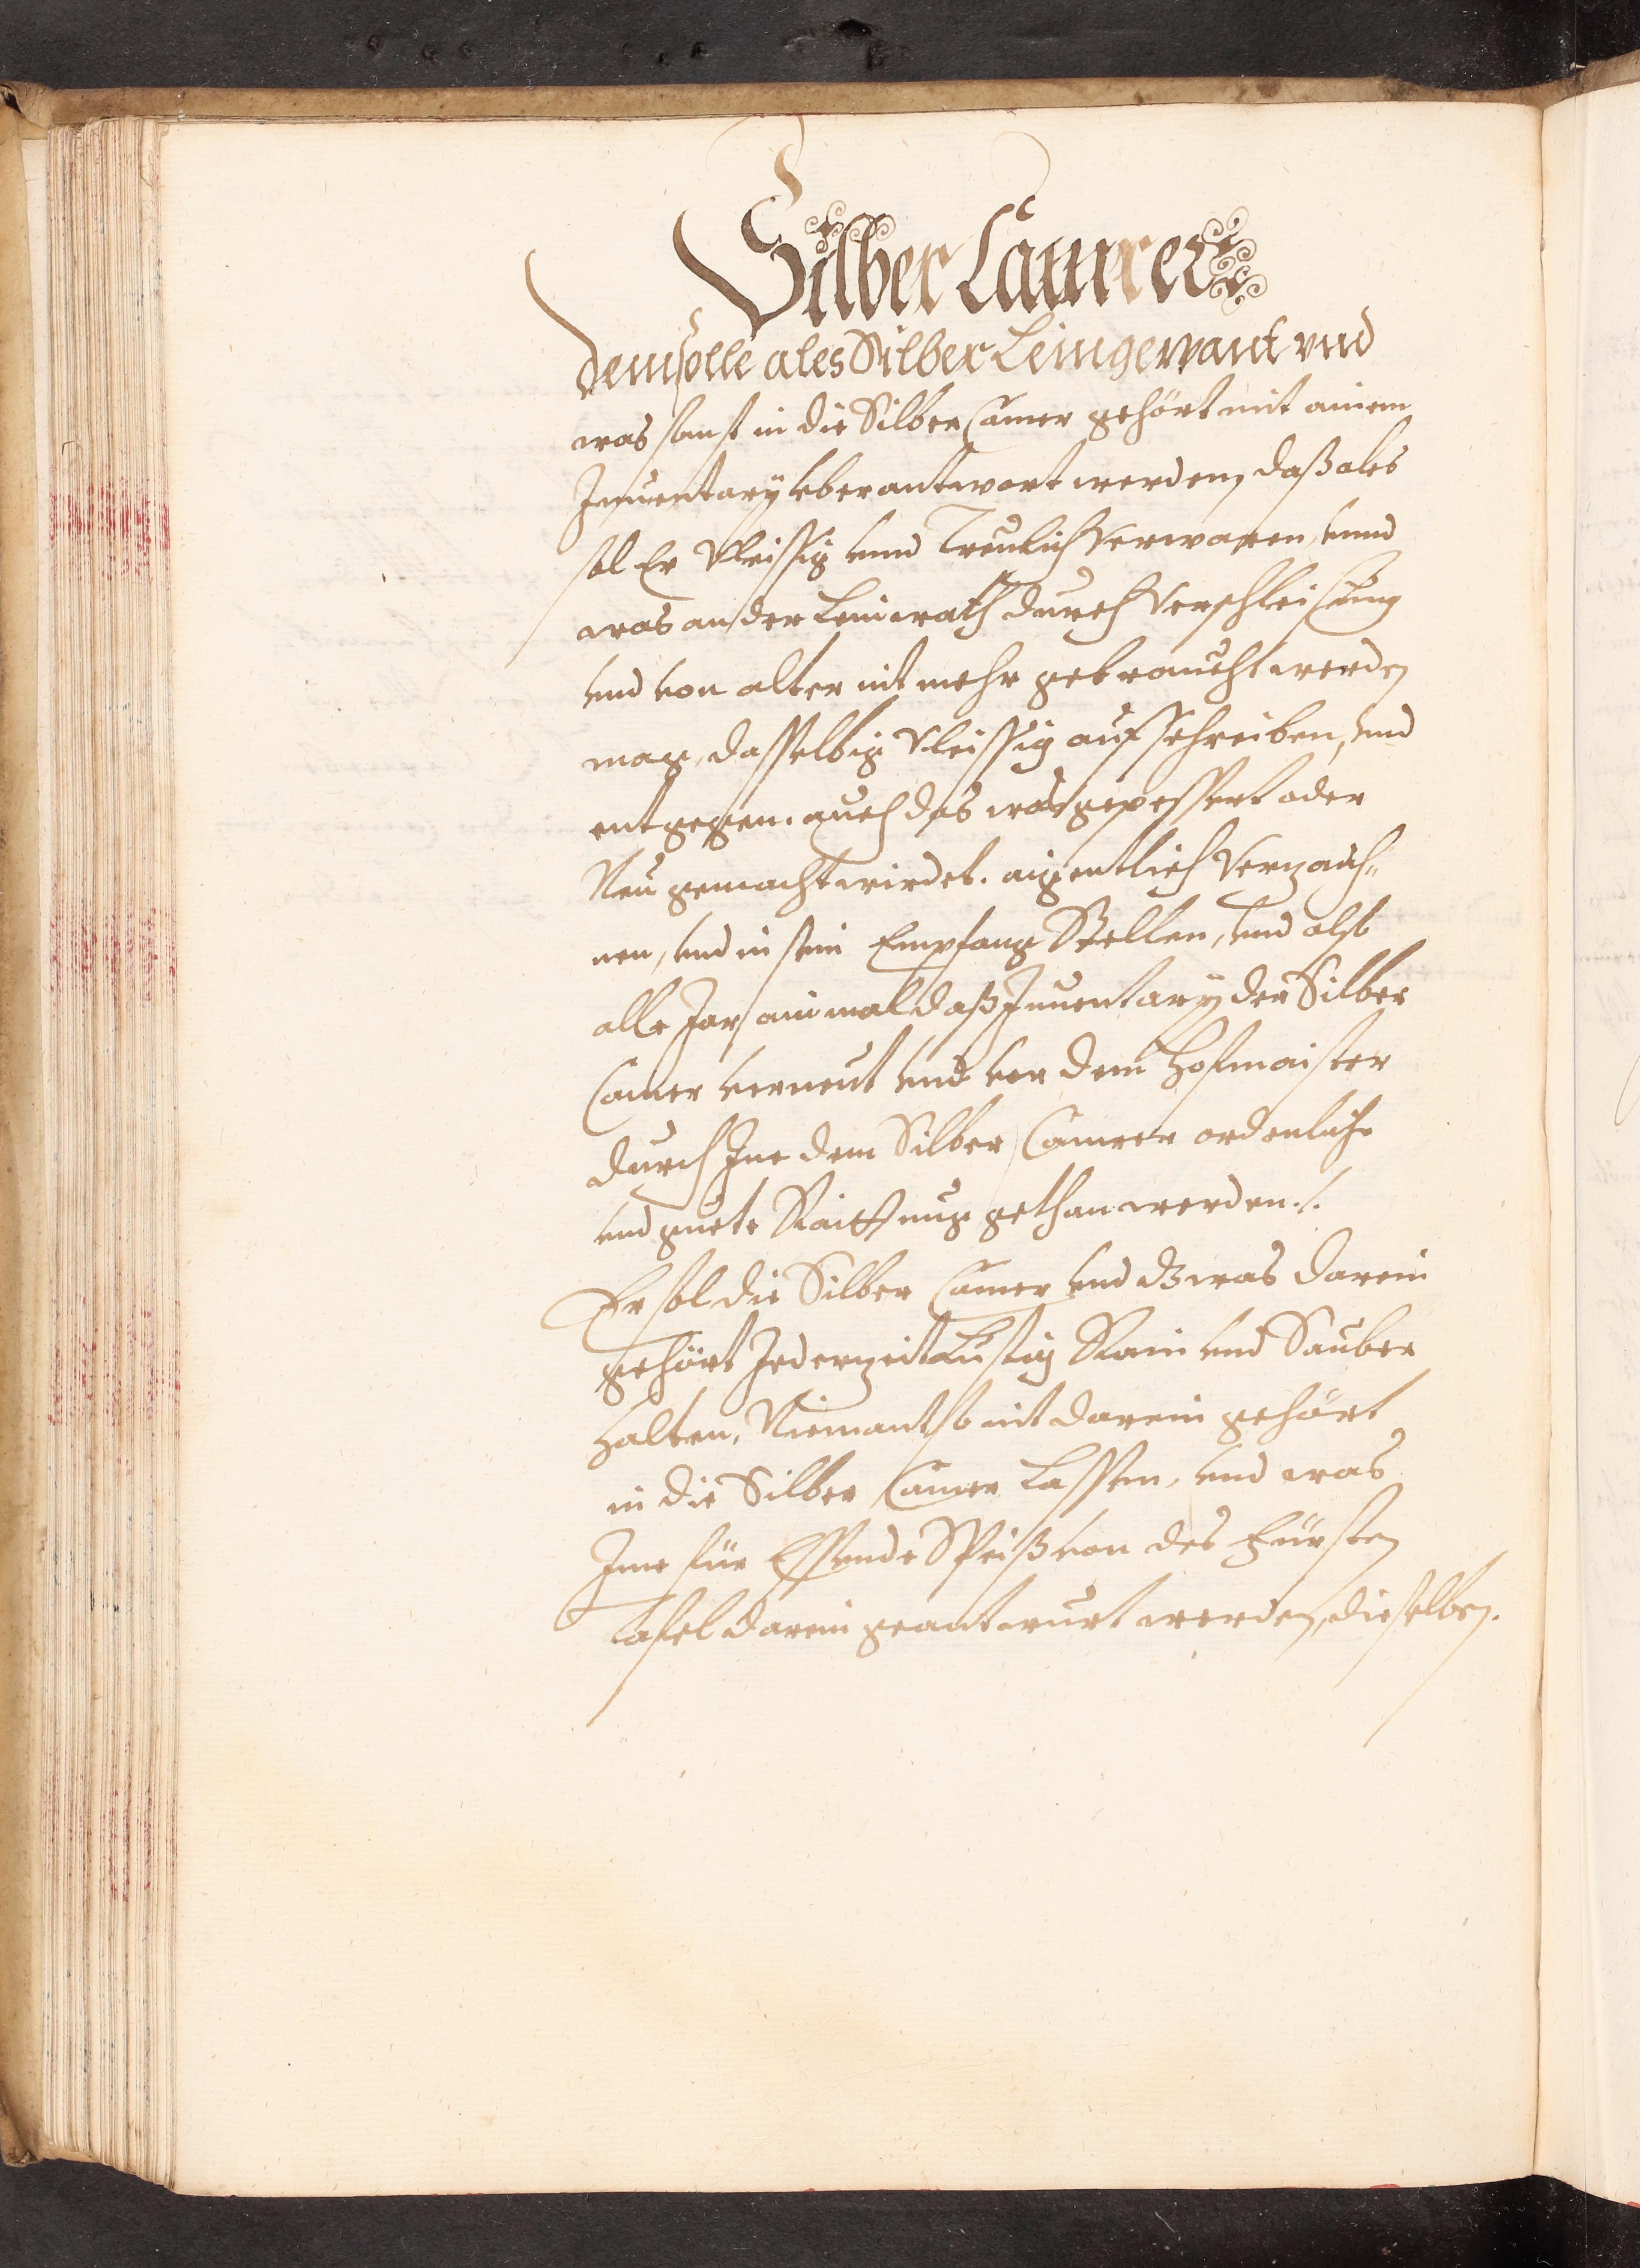 Silber Camrer
Dem solle ales Silber Leingewant vnd
was sonst in die Silber Camer gehört mit ainem
Inuentarÿ vberantwort werden, daß ales
sol Er Vleissig vnnd Treulich Verwaren, vnnd
was an der Leinwath durch Verschleissung
vnd von alter nit mehr gebraucht werden
mag, dasselbig Vleissig aufschreiben, vnd
entgegen. auch das was gepessert oder
Neu gemacht wirdet. aigentlich Verzaich„
nen, vnd in sein Empfang Stellen, vnd also
alle Jar ainmal daß Inuentarÿ der Silber
Camer verneut vnd vor dem Hofmaister
durch Ine dem Silber Camrer ordenliche
vnd guete Raittung gethan werden ./.
Er sol die Silber Camer vnd dz was darein
gehört Jederzeit Lustig Rain vnd Sauber
halten, Niemant so nit darein gehört
in die Silber Camer Lassen, vnd was
Ime für Essende Speiß von des Fürsten
tafel darein geantwurt werden, dieselben.